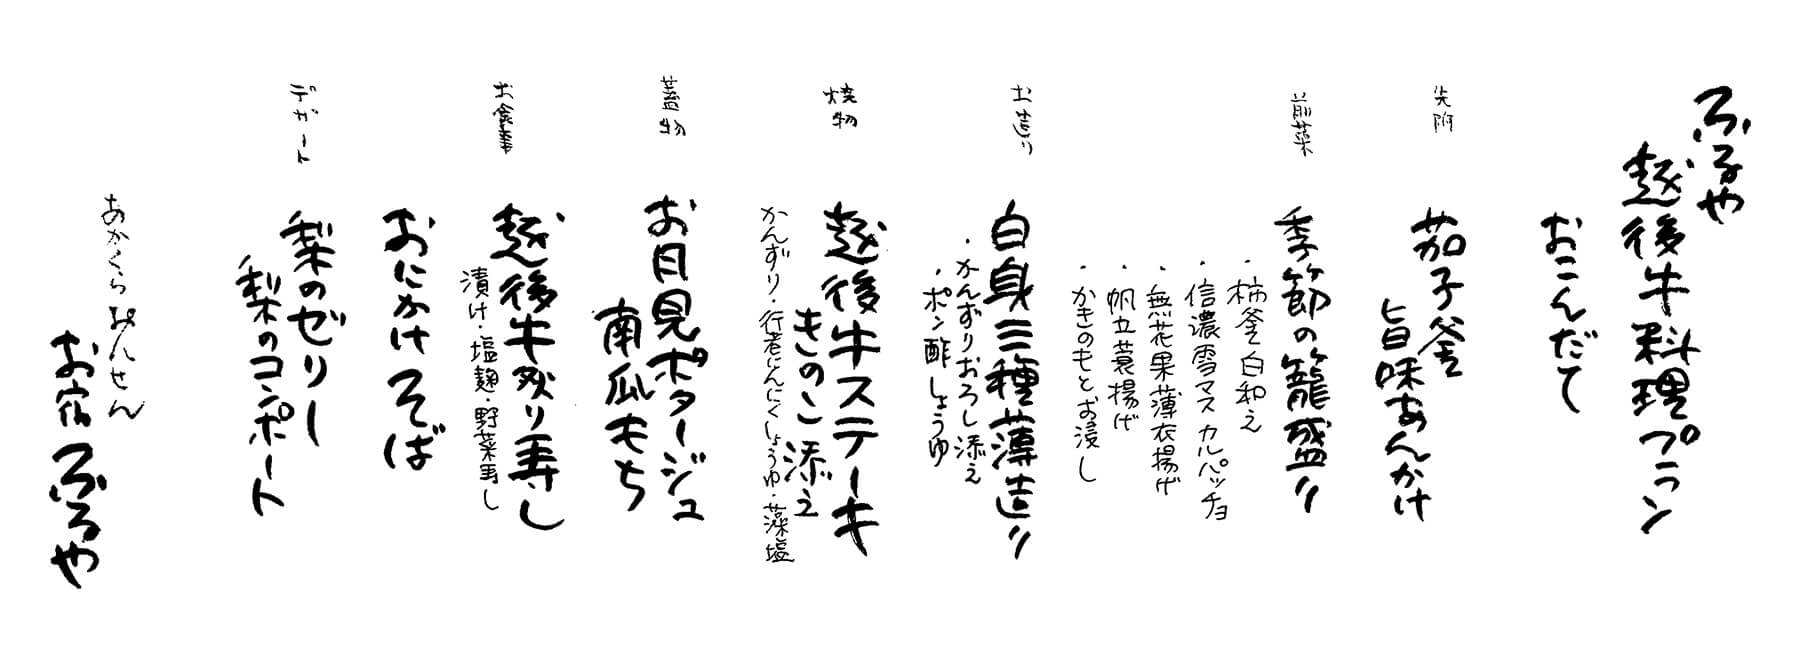 ふるや
越後牛料理プラン
おこんだて
先附
茄子釜
旨味あんかけ
前菜
季節の籠盛り
・柿釜白和え
・信濃雪マスカルパッチョ
・無花果薄衣揚げ
・帆立蓑揚げ
・かきのもとお浸し
お造り
白身三種薄造り
・かんずりおろし添え
・ポン酢しょうゆ
焼物
越後牛ステーキ
きのこ添え
かんずり・行者にんにくしょうゆ・藻塩
蓋物
お月見ポタージュ
南瓜もち
お食事
越後牛炙り寿し
漬け・塩麹・野菜寿し
おにかけそば
デザート
梨のゼリー
梨のコンポート
あかくらおんせん
お宿ふるや